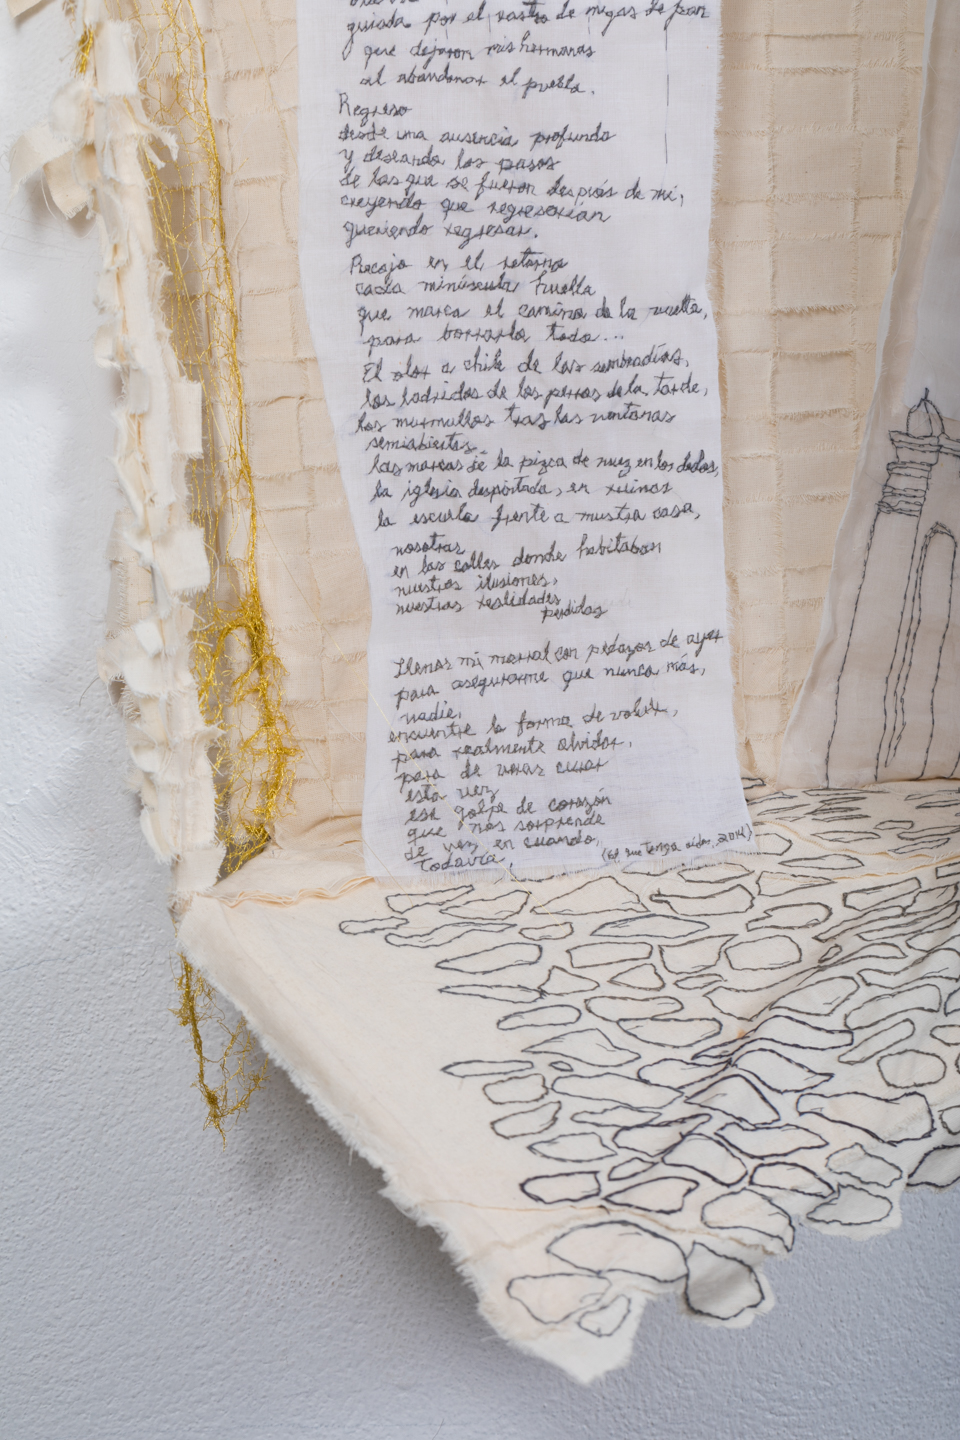 guiada por el rastro de migas de pan
que dejaron mis hermanas
al abandonar el pueblo.
Regreso
desde una ausencia profunda
y deseando los pasos
de las que se fueron después de mí,
creyendo que regresarían
queriendo regresar.
Recojo en el retorno
cada minúscula huella
que marca el camino de la vuelta,
para borrarlo todo...
El olor a chile de los sembradíos,
los ladridos de los perros de la tarde,
los murmullos tras las ventanas
semiabiertas
las marcas de la pizca de nuez en los dedos,
la iglesia despintada, en ruinas
la escuela frente a nuestra casa,
nosotras
en las calles donde habitaban
nuestras ilusiones,
nuestras realidades
perdidas
Llenar mi morral con pedazos de ayer
para asegurarme que nunca más,
nadie,
encuentre la forma de volver,
para realmente olvidar,
para de veras curar
esta vez
ese golpe de corazón
que nos sorprende
de vez en cuando,
Todavía.
(El que tenga oídos, 2014)